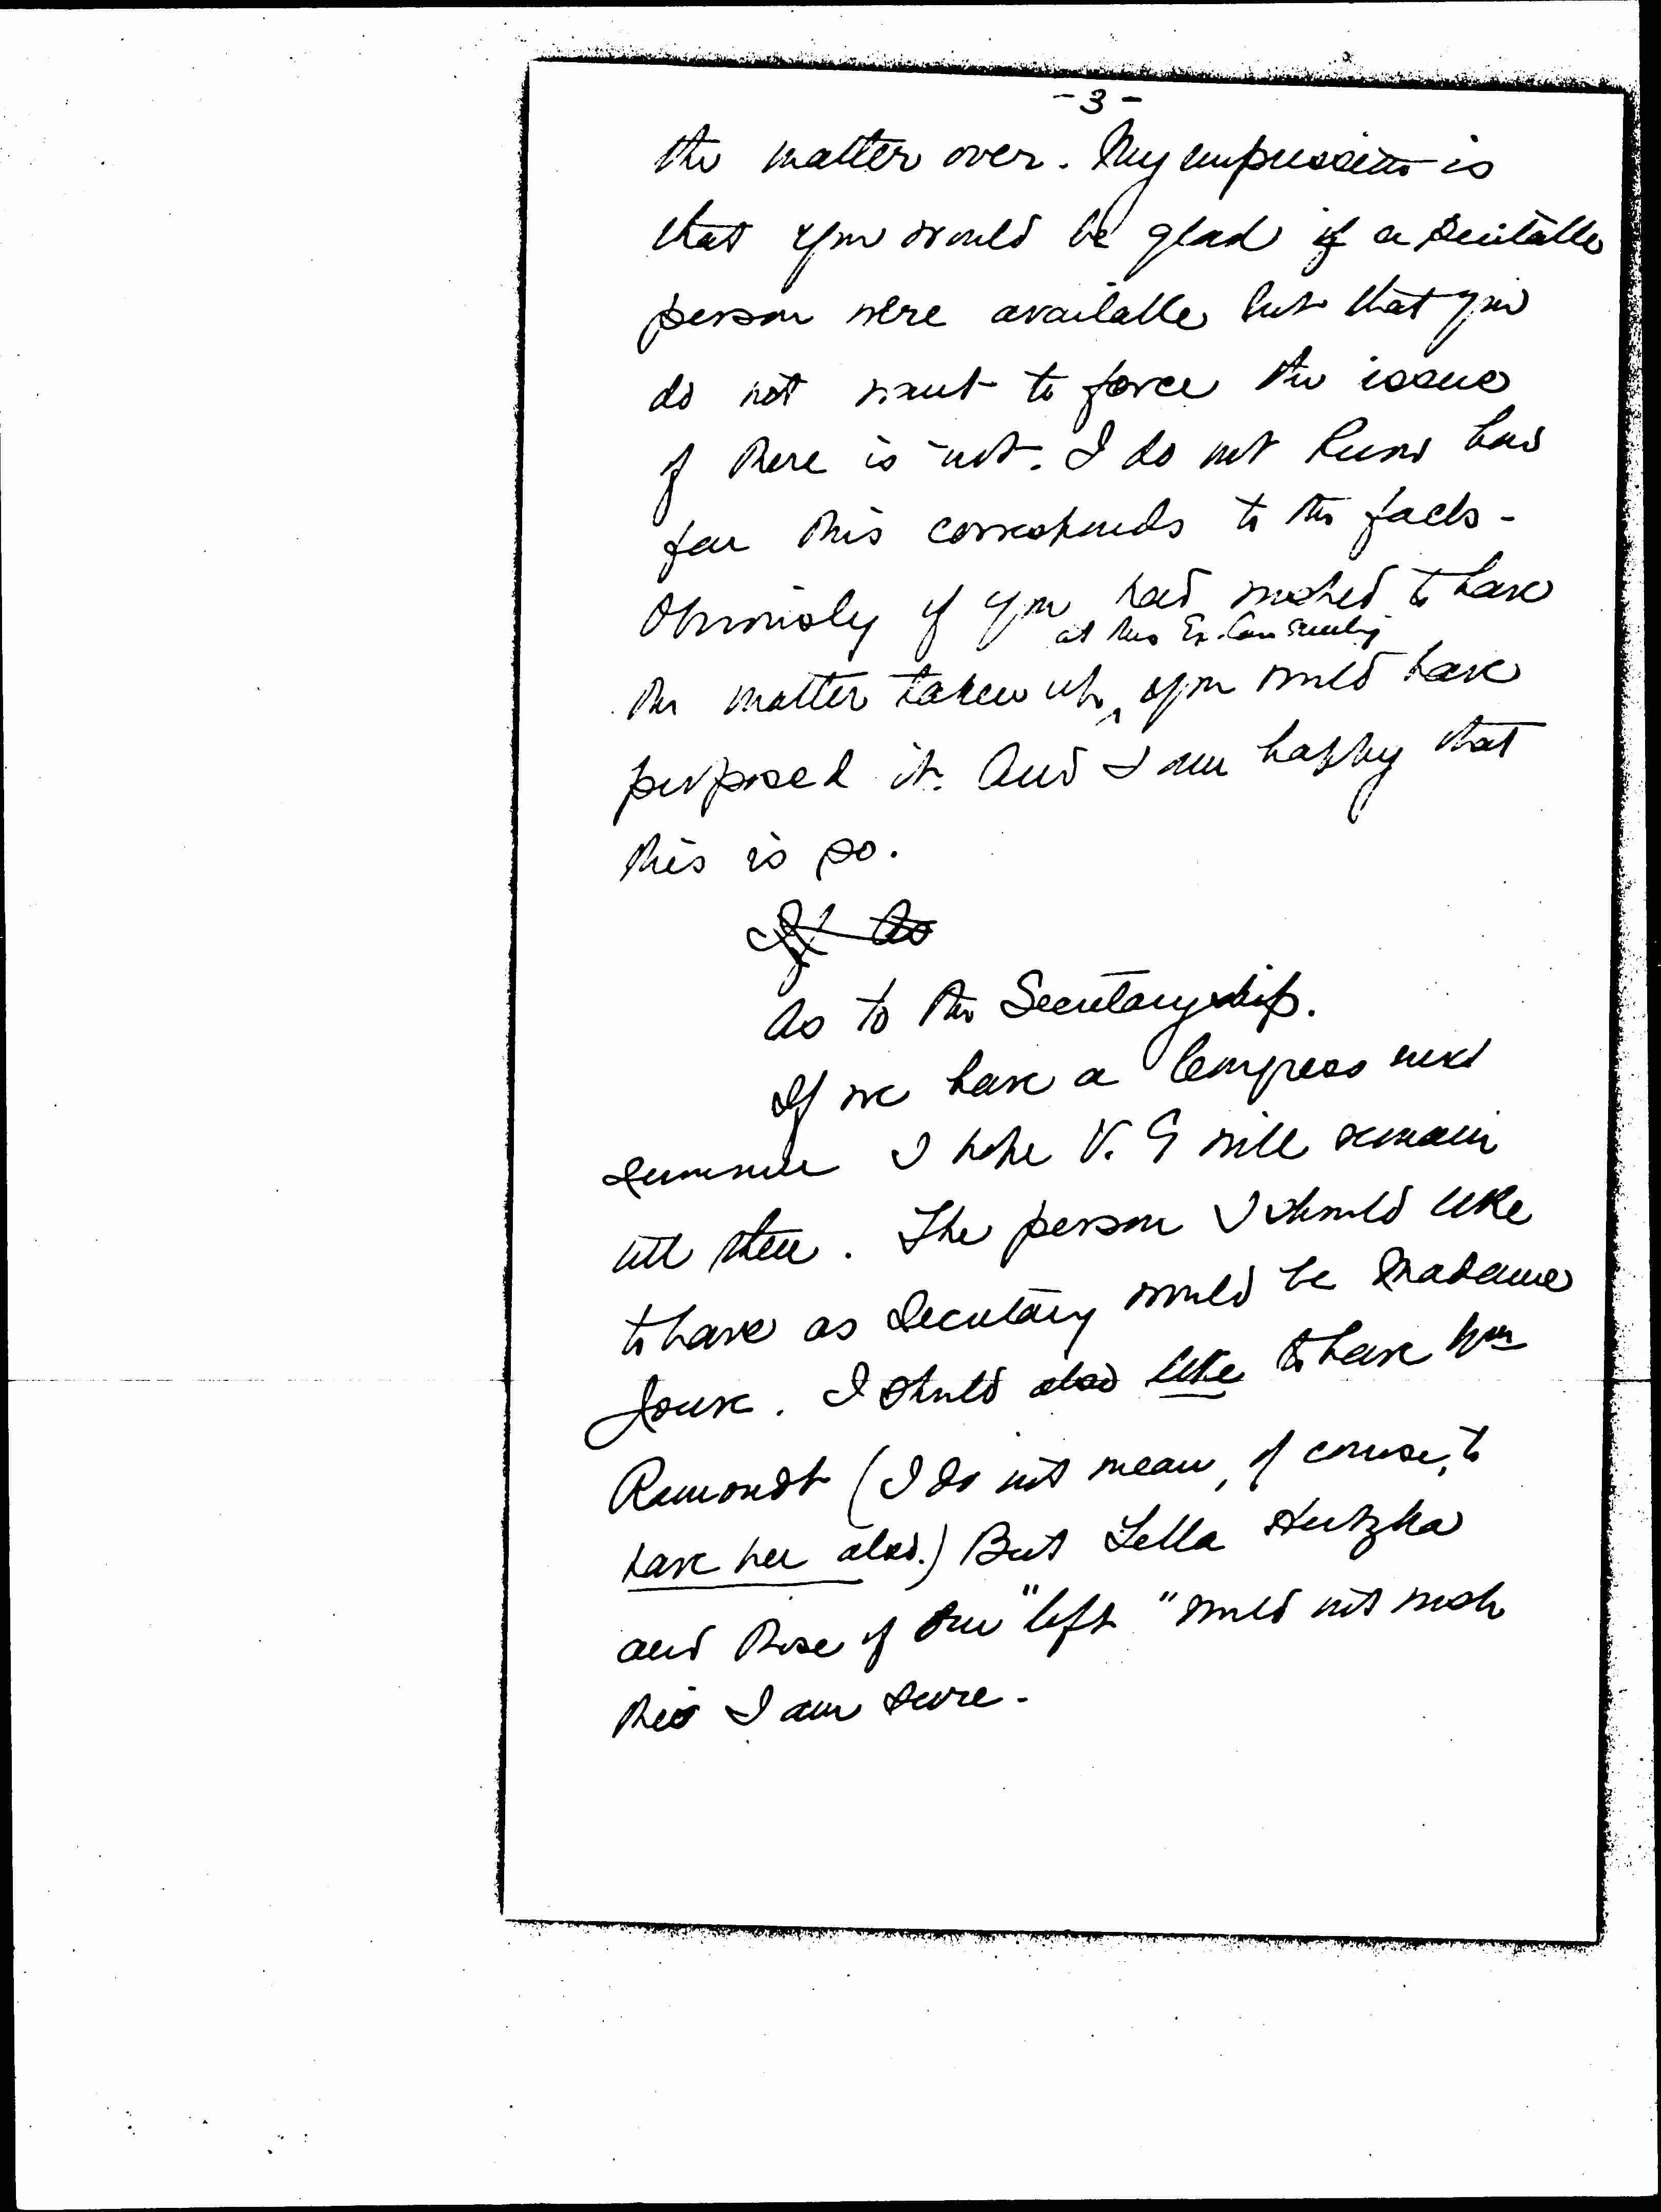 - 3 -
the matter over. My impression is
that you would be glad if a suitable
person were available but that you
do not want to force the issue
if there is not. I do not know how
far this corresponds to the facts -
Obviously if you had wished to have
at this Ex. Com meeting
the matter taken up you would have
proposed it. And I am happy that
this is so.
If As
As to the Secretaryship.
If we have a Congress next
summer I hope V. G will remain
till then. The person I should like
to have as Secretary would be Madame
Jouve. I should also like to have
Ramondt (I do not mean, of course, to
have her also.) But Lella
and those of our "left" would not wish
this I am sure.